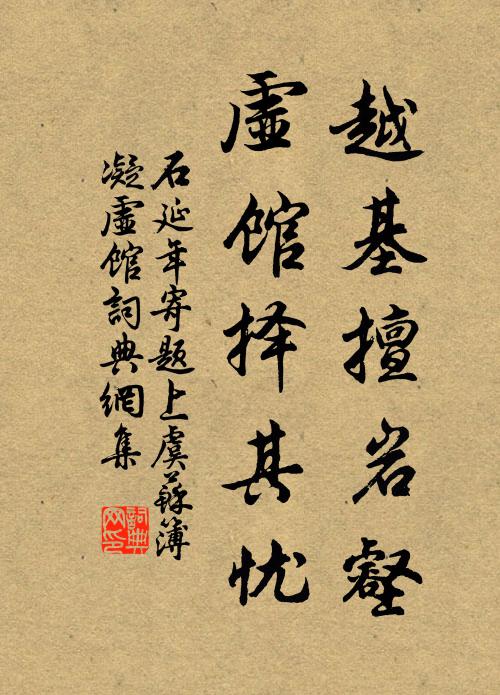 越基擅岩壑
虚馆择其忧
石延年寄题上虞苏簿
凝虚馆詞典網集
詞典网印